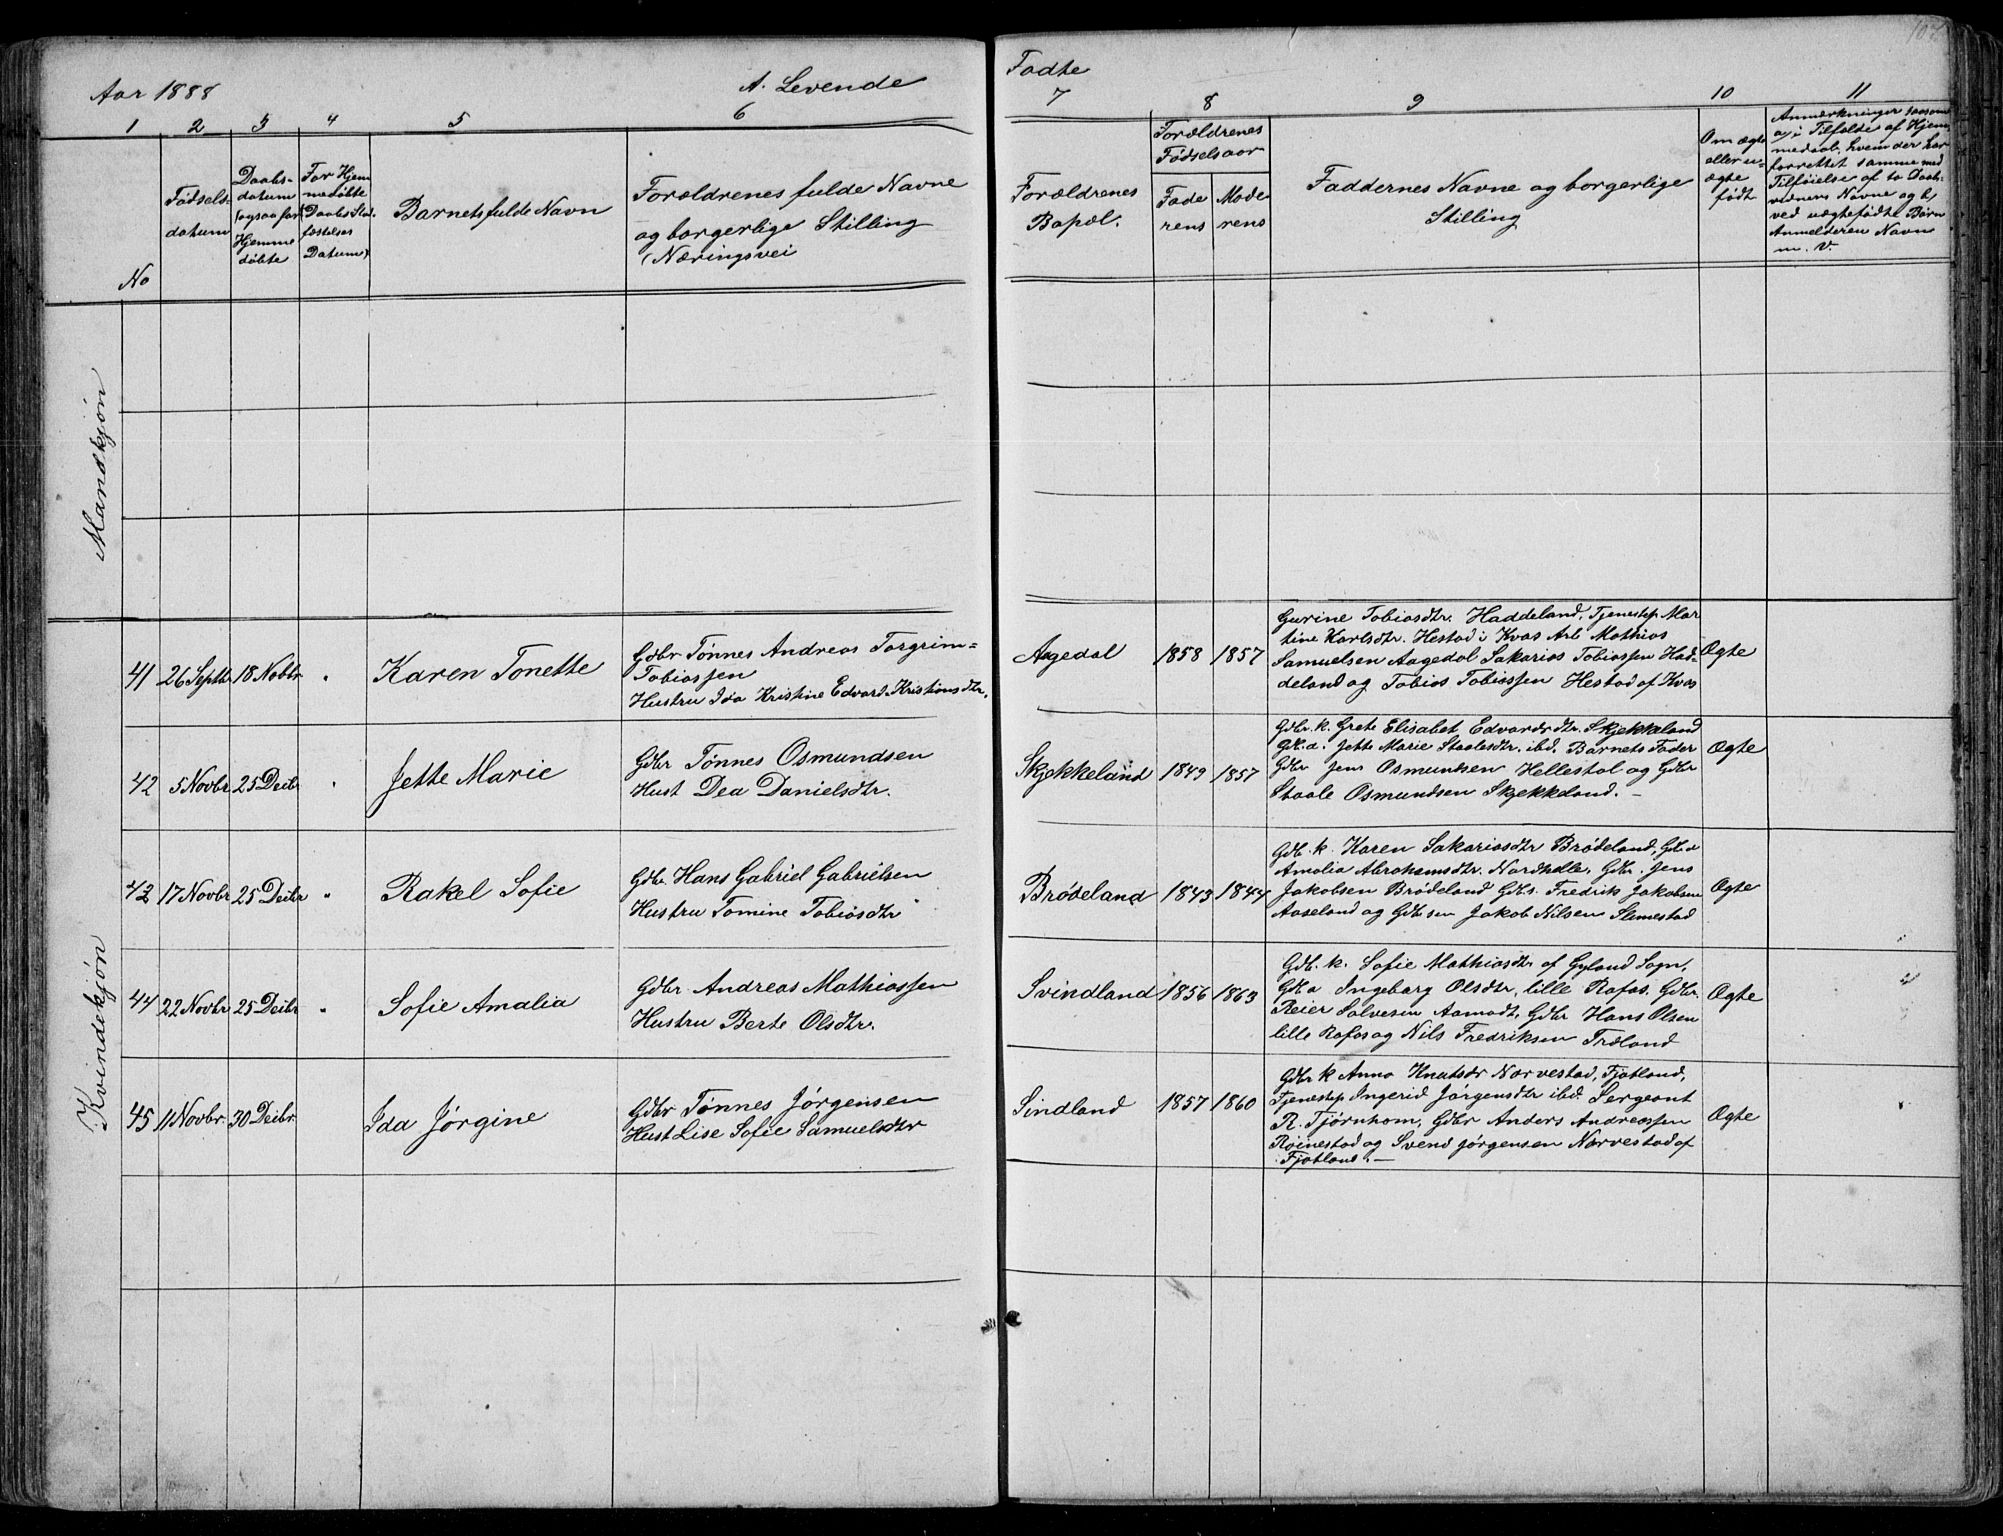 107
Aar 1888
A. Levende
Fødte
1 2 3 4 5 6 7 8 9 10 11
No
Fødsels-
datum
Daabs-
datum
(ogsaa for
Hjemme
døbte
For Hjem
medøbte
Daabs Sta
fæstelses
Datum)
Barnets fulde Navn
Forældrenes fulde Navne
og borgerlige Stilling
(Næringsvei
Forældrenes
Bopæl.
Forældrenes
Fødselsaar
Fade
rens
Mode
rens
Faddernes Navne og borgerlige
Stilling
Om ægte
eller u-
ægte
født
Anmærkninger saasom
a, i Tilfælde af Hjem
medaab, hvem der har
forrettet samme med
Tilføielse af to Daab-
vidners Navne og b,
ved uægtefødte Børn
Anmelderen Navn
m. v.
Mandkjøn
Kvindekjøn
41 26 Septbr 18 Novbr "
Karen Tonette
Gdbr Tønnes Andreas Torgrim=
Tobiassen
Hustru Ida Kristine Edvard Kristiansdtr.
Aagedal 1858 1857
Gurine Tobiasdtr. Haddeland, Tjenestep. Mar
tine Karlsdtr. Hestad i Kvas Arb Mathias
Samuelsen Aagedal Sakarias Tobiassen Had-
deland og Tobias Tobiassen Hestad af Kvas
Ægte
42 5 Novbr 25 Decbr "
Jette Marie
Gdbr Tønnes Osmundsen
Hust Dea Danielsdtr.
Skjekkeland 1849 1857
Gdbr. k. Grete Elisabet Edvardsdtr. Skjekkeland
Gk. a. Jette Marie Staalesdtr. ibd. Barnets Fader
Gdbr Jens Osmundsen Hellestøl og Gdbr
Staale Osmundsen Skjekkeland. —
Ægte
43 17 Novbr 25 Decbr "
Rakel Sofie
Gdbr. Hans Gabriel Gabrielsen
Hustru Tomine Tobiasdtr
Brødeland 1843 1844
Gdb. k. Karen Sakariasdtr Brødeland, Gk. a
Amalia Abrahamsdtr. Nordhelle, Gdbr. Jens
Jakobsen Brødeland Gdbs. Fredrik Jakobsen
Aaseland og Gdbr sen Jakob Nilsen Slimestad
Ægte
44 22 Novbr 25 Decbr "
Sofie Amalia
Gdbr Andreas Mathiassen
Hustru Berte Olsdtr.
Svindland 1856 1863
Gdb. k. Sofie Mathiasdtr af Gyland Sogn,
Gk. a Ingeborg Olsdtr, lille Rafos. Gdbr.
Reier Salvesen Aamodt, Gdbr Hans Olsen
lille Rafos og Nils Fredriksen Træland
Ægte
45 11 Novbr. 30 Decbr.
Ida Jørgine
Gdbr Tønnes Jørgensen
Hust Lise Sofie Samuelsdtr
Sindland 1857 1860
Gdbr k Anna Knutsdtr Narvestad, Fjotland,
Tjenestep Ingerid Jørgensdtr ibd. Sergeant
R. Tjørnhom, Gdbr Anders Andreassen
Røinestad og Svend Jørgensen Narvestad af
Fjotland. —
Ægte